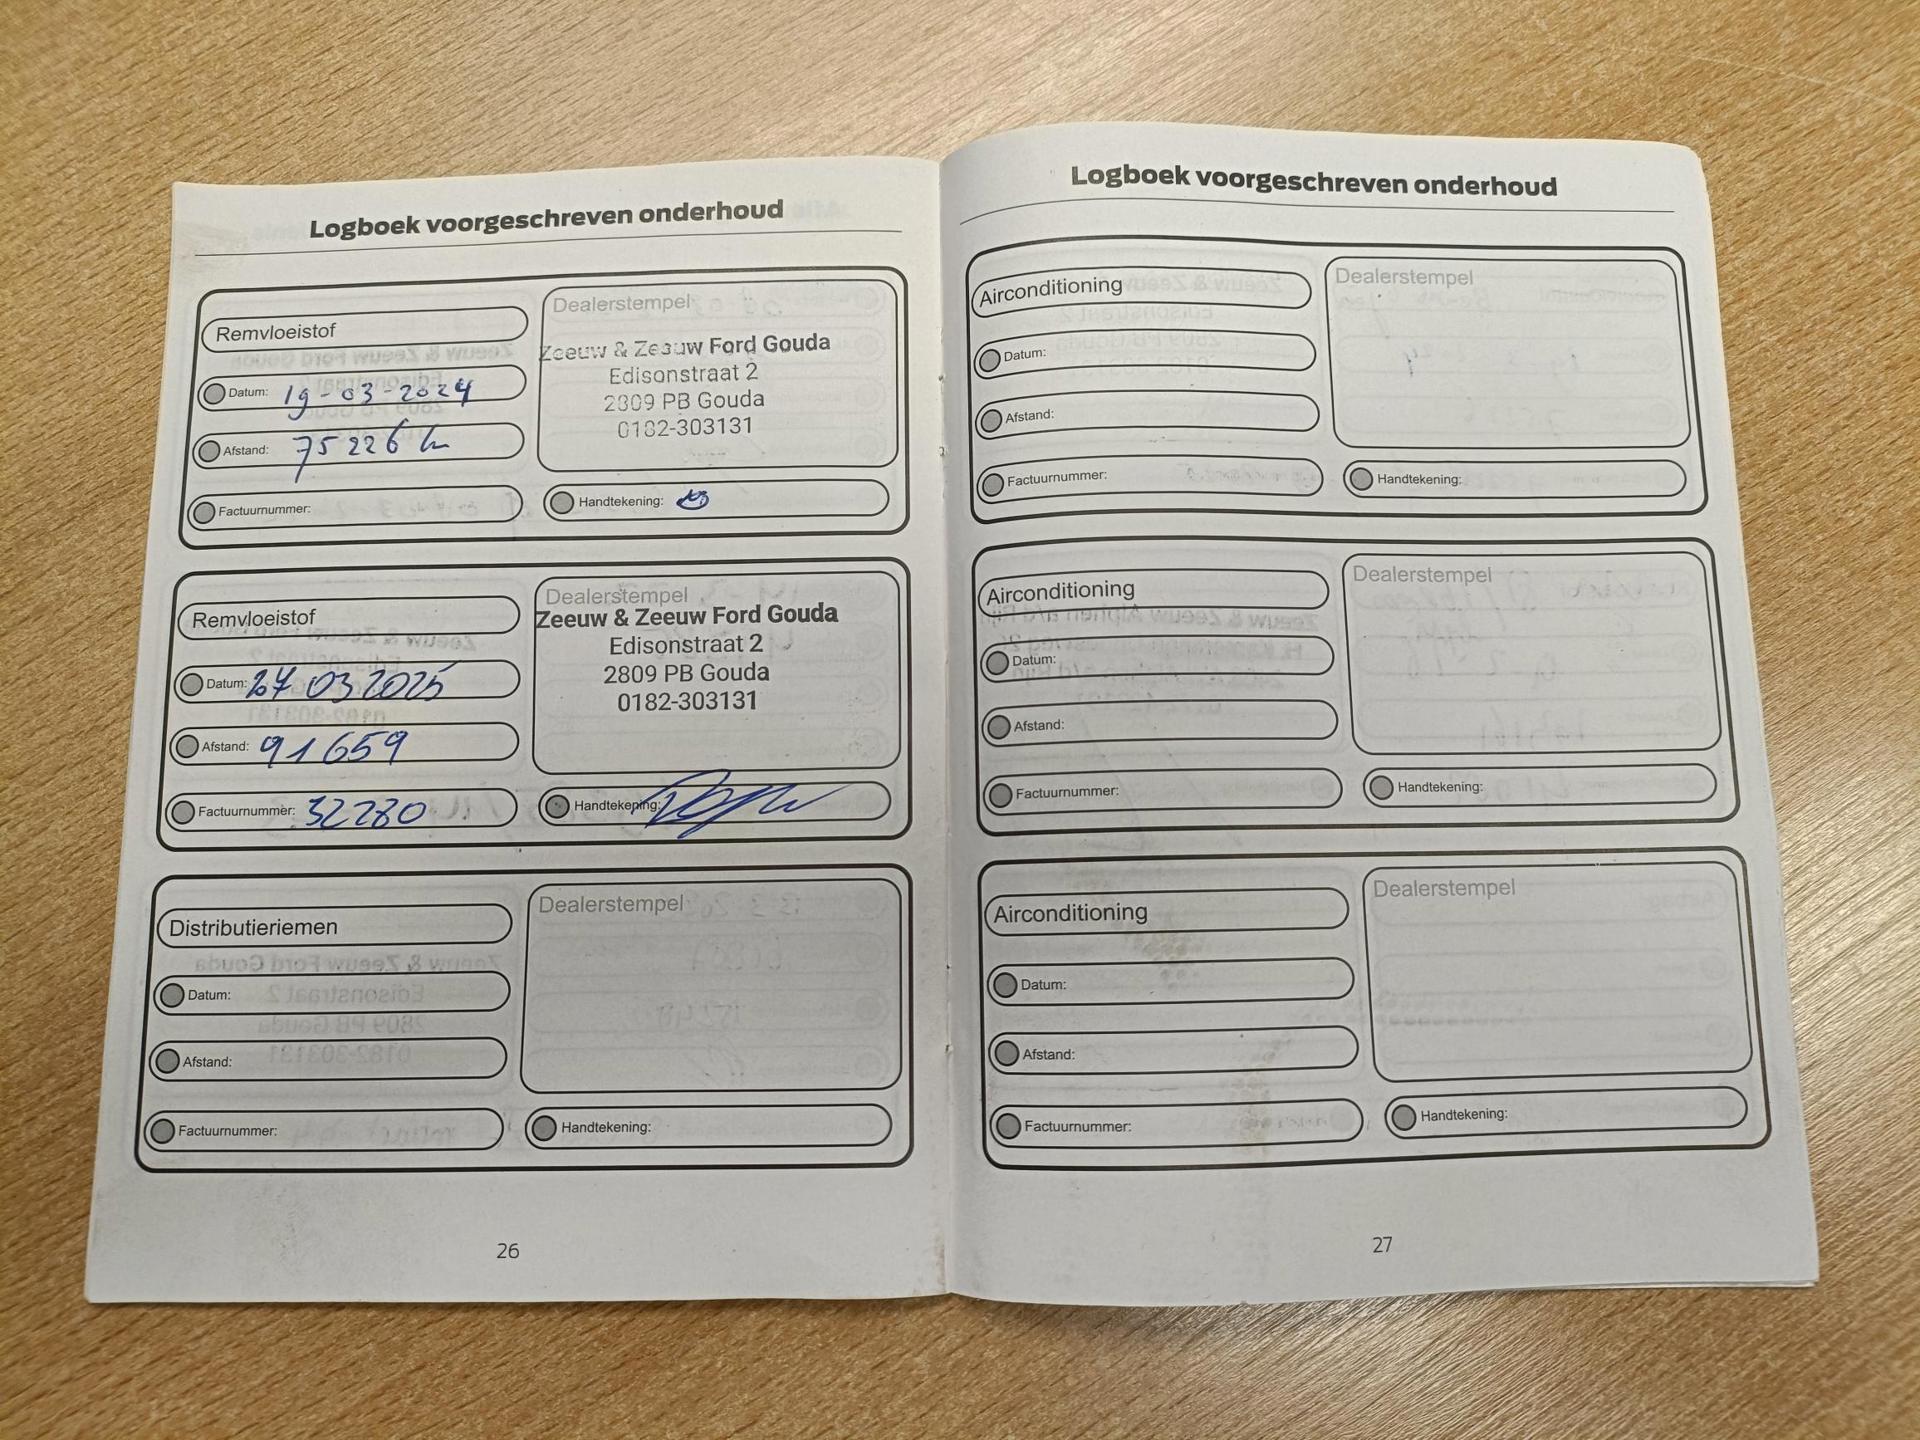 Logboek voorgeschreven onderhoud
Remvloeistof
Datum: 19-03-2024
Afstand: 75226 km
Factuurnummer:
Dealerstempel
Zeeuw & Zeeuw Ford Gouda
Edisonstraat 2
2809 PB Gouda
0182-303131
Handtekening:
Remvloeistof
Datum: 27 03 2025
Afstand: 91659
Factuurnummer: 32280
Dealerstempel
Zeeuw & Zeeuw Ford Gouda
Edisonstraat 2
2809 PB Gouda
0182-303131
Handtekening:
Distributieriemen
Datum:
Afstand:
Factuurnummer:
Dealerstempel
Handtekening:
26
Logboek voorgeschreven onderhoud
Airconditioning
Datum:
Afstand:
Factuurnummer:
Dealerstempel
Handtekening:
Airconditioning
Datum:
Afstand:
Factuurnummer:
Dealerstempel
Handtekening:
Airconditioning
Datum:
Afstand:
Factuurnummer:
Dealerstempel
Handtekening:
27